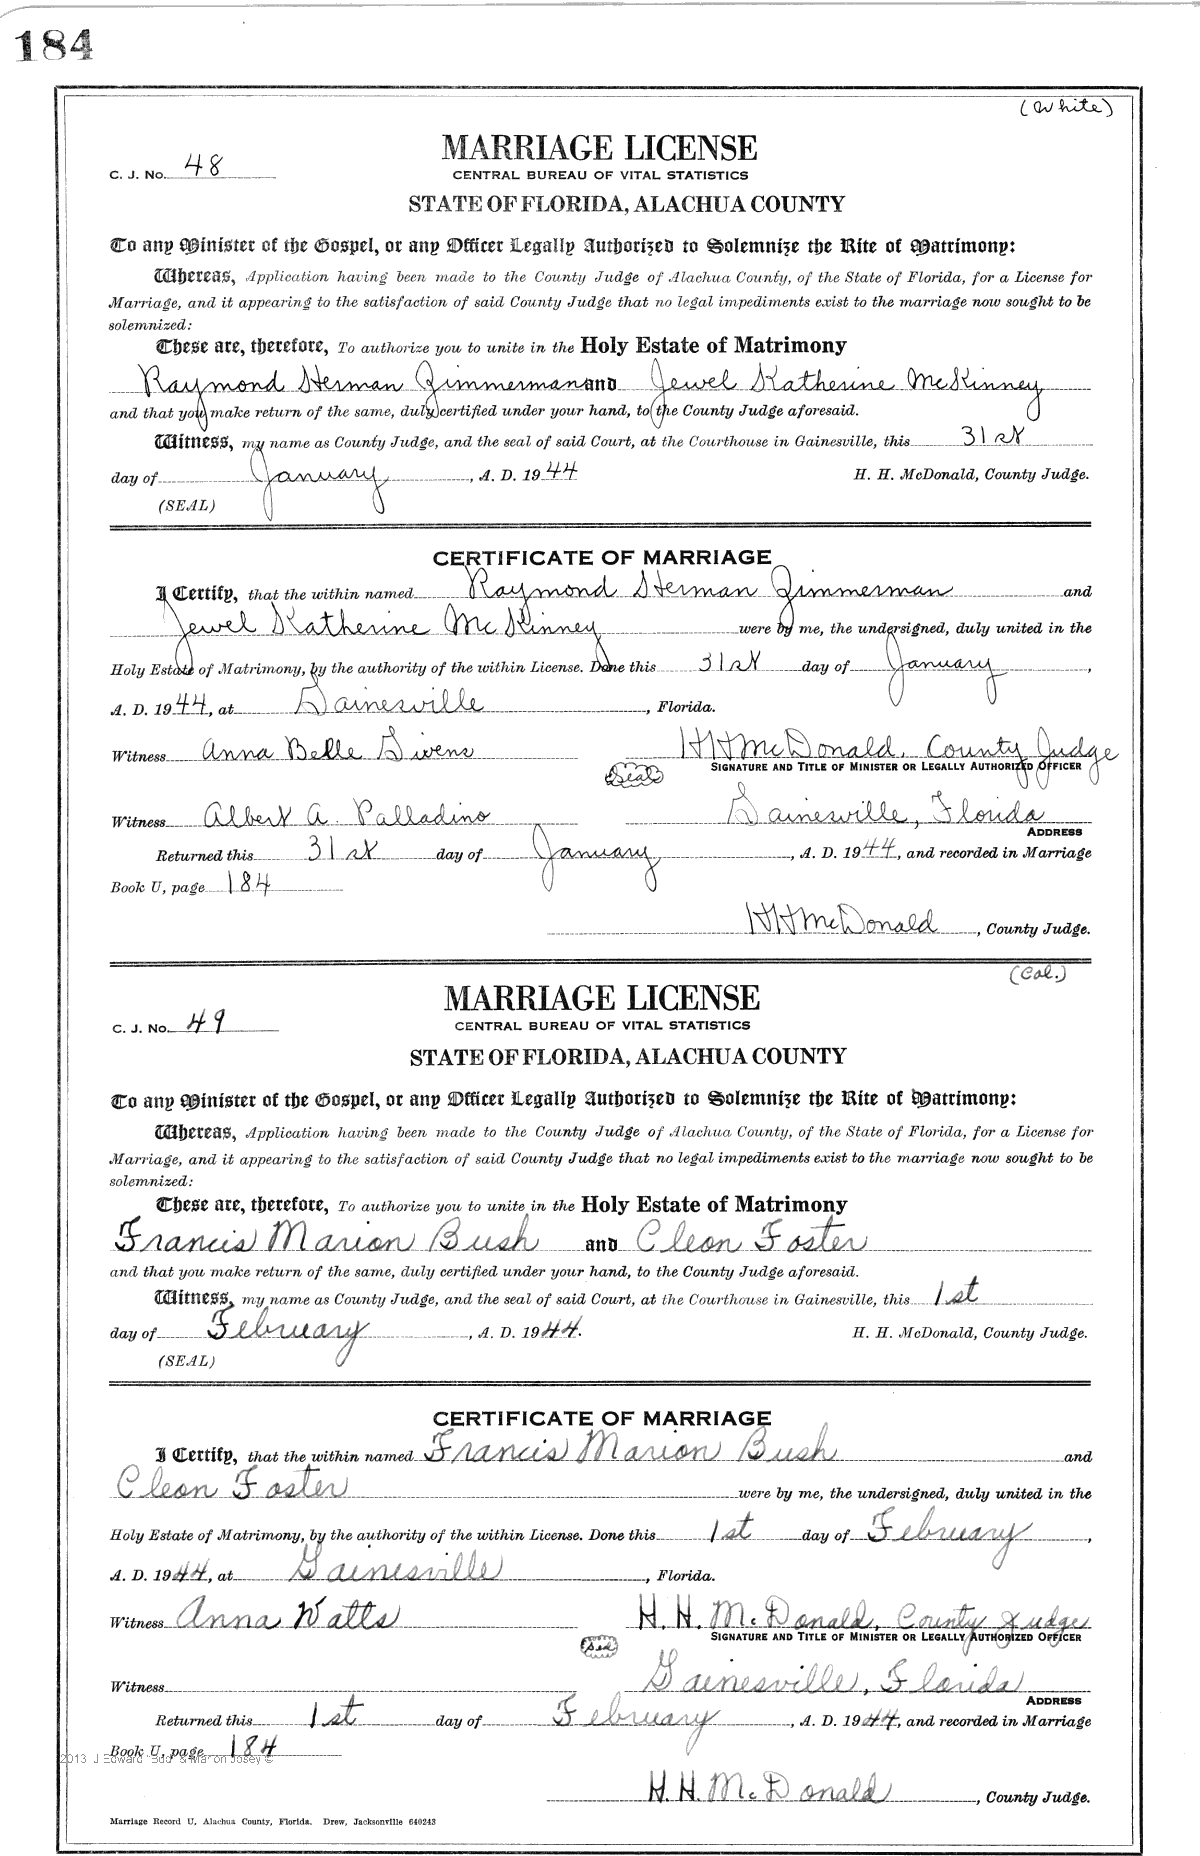 184
(White)
MARRIAGE LICENSE
C. J. No. 48
CENTRAL BUREAU OF VITAL STATISTICS
STATE OF FLORIDA, ALACHUA COUNTY
To any Minister of the Gospel, or any Officer Legally Authorized to Solemnize the Rite of Matrimony:
Whereas, Application having been made to the County Judge of Alachua County, of the State of Florida, for a License for
Marriage, and it appearing to the satisfaction of said County Judge that no legal impediments exist to the marriage now sought to be
solemnized:
These are, therefore, To authorize you to unite in the Holy Estate of Matrimony
Raymond Herman Zimmerman and Jewel Katherine McKinney
and that you make return of the same, duly certified under your hand, to the County Judge aforesaid.
Witness, my name as County Judge, and the seal of said Court, at the Courthouse in Gainesville, this 31st
day of January, A. D. 1944 H. H. McDonald, County Judge.
(SEAL)
CERTIFICATE OF MARRIAGE
I Certify, that the within named Raymond Herman Zimmerman and
Jewel Katherine McKinney were by me, the undersigned, duly united in the
Holy Estate of Matrimony, by the authority of the within License. Done this 31st day of January,
A. D. 1944, at Gainesville, Florida.
Witness Anna Belle Givens HH McDonald, County Judge
(Seal) SIGNATURE AND TITLE OF MINISTER OR LEGALLY AUTHORIZED OFFICER
Witness Albert A. Palladino Gainesville, Florida
ADDRESS
Returned this 31st day of January, A. D. 1944, and recorded in Marriage
Book U, page 184
HH McDonald, County Judge.
(Col.)
MARRIAGE LICENSE
C. J. No. 49
CENTRAL BUREAU OF VITAL STATISTICS
STATE OF FLORIDA, ALACHUA COUNTY
To any Minister of the Gospel, or any Officer Legally Authorized to Solemnize the Rite of Matrimony:
Whereas, Application having been made to the County Judge of Alachua County, of the State of Florida, for a License for
Marriage, and it appearing to the satisfaction of said County Judge that no legal impediments exist to the marriage now sought to be
solemnized:
These are, therefore, To authorize you to unite in the Holy Estate of Matrimony
Francis Marion Bush and Cleon Foster
and that you make return of the same, duly certified under your hand, to the County Judge aforesaid.
Witness, my name as County Judge, and the seal of said Court, at the Courthouse in Gainesville, this 1st
day of February, A. D. 1944. H. H. McDonald, County Judge.
(SEAL)
CERTIFICATE OF MARRIAGE
I Certify, that the within named Francis Marion Bush and
Cleon Foster were by me, the undersigned, duly united in the
Holy Estate of Matrimony, by the authority of the within License. Done this 1st day of February,
A. D. 1944, at Gainesville, Florida.
Witness Anna Watts H. H. McDonald, County Judge
SIGNATURE AND TITLE OF MINISTER OR LEGALLY AUTHORIZED OFFICER
Witness Gainesville, Florida
ADDRESS
Returned this 1st day of February, A. D. 1944, and recorded in Marriage
Book U, page 184
2013 J Edward & Marion Josey ©
H. H. McDonald, County Judge.
Marriage Record U, Alachua County, Florida. Drew, Jacksonville 640243